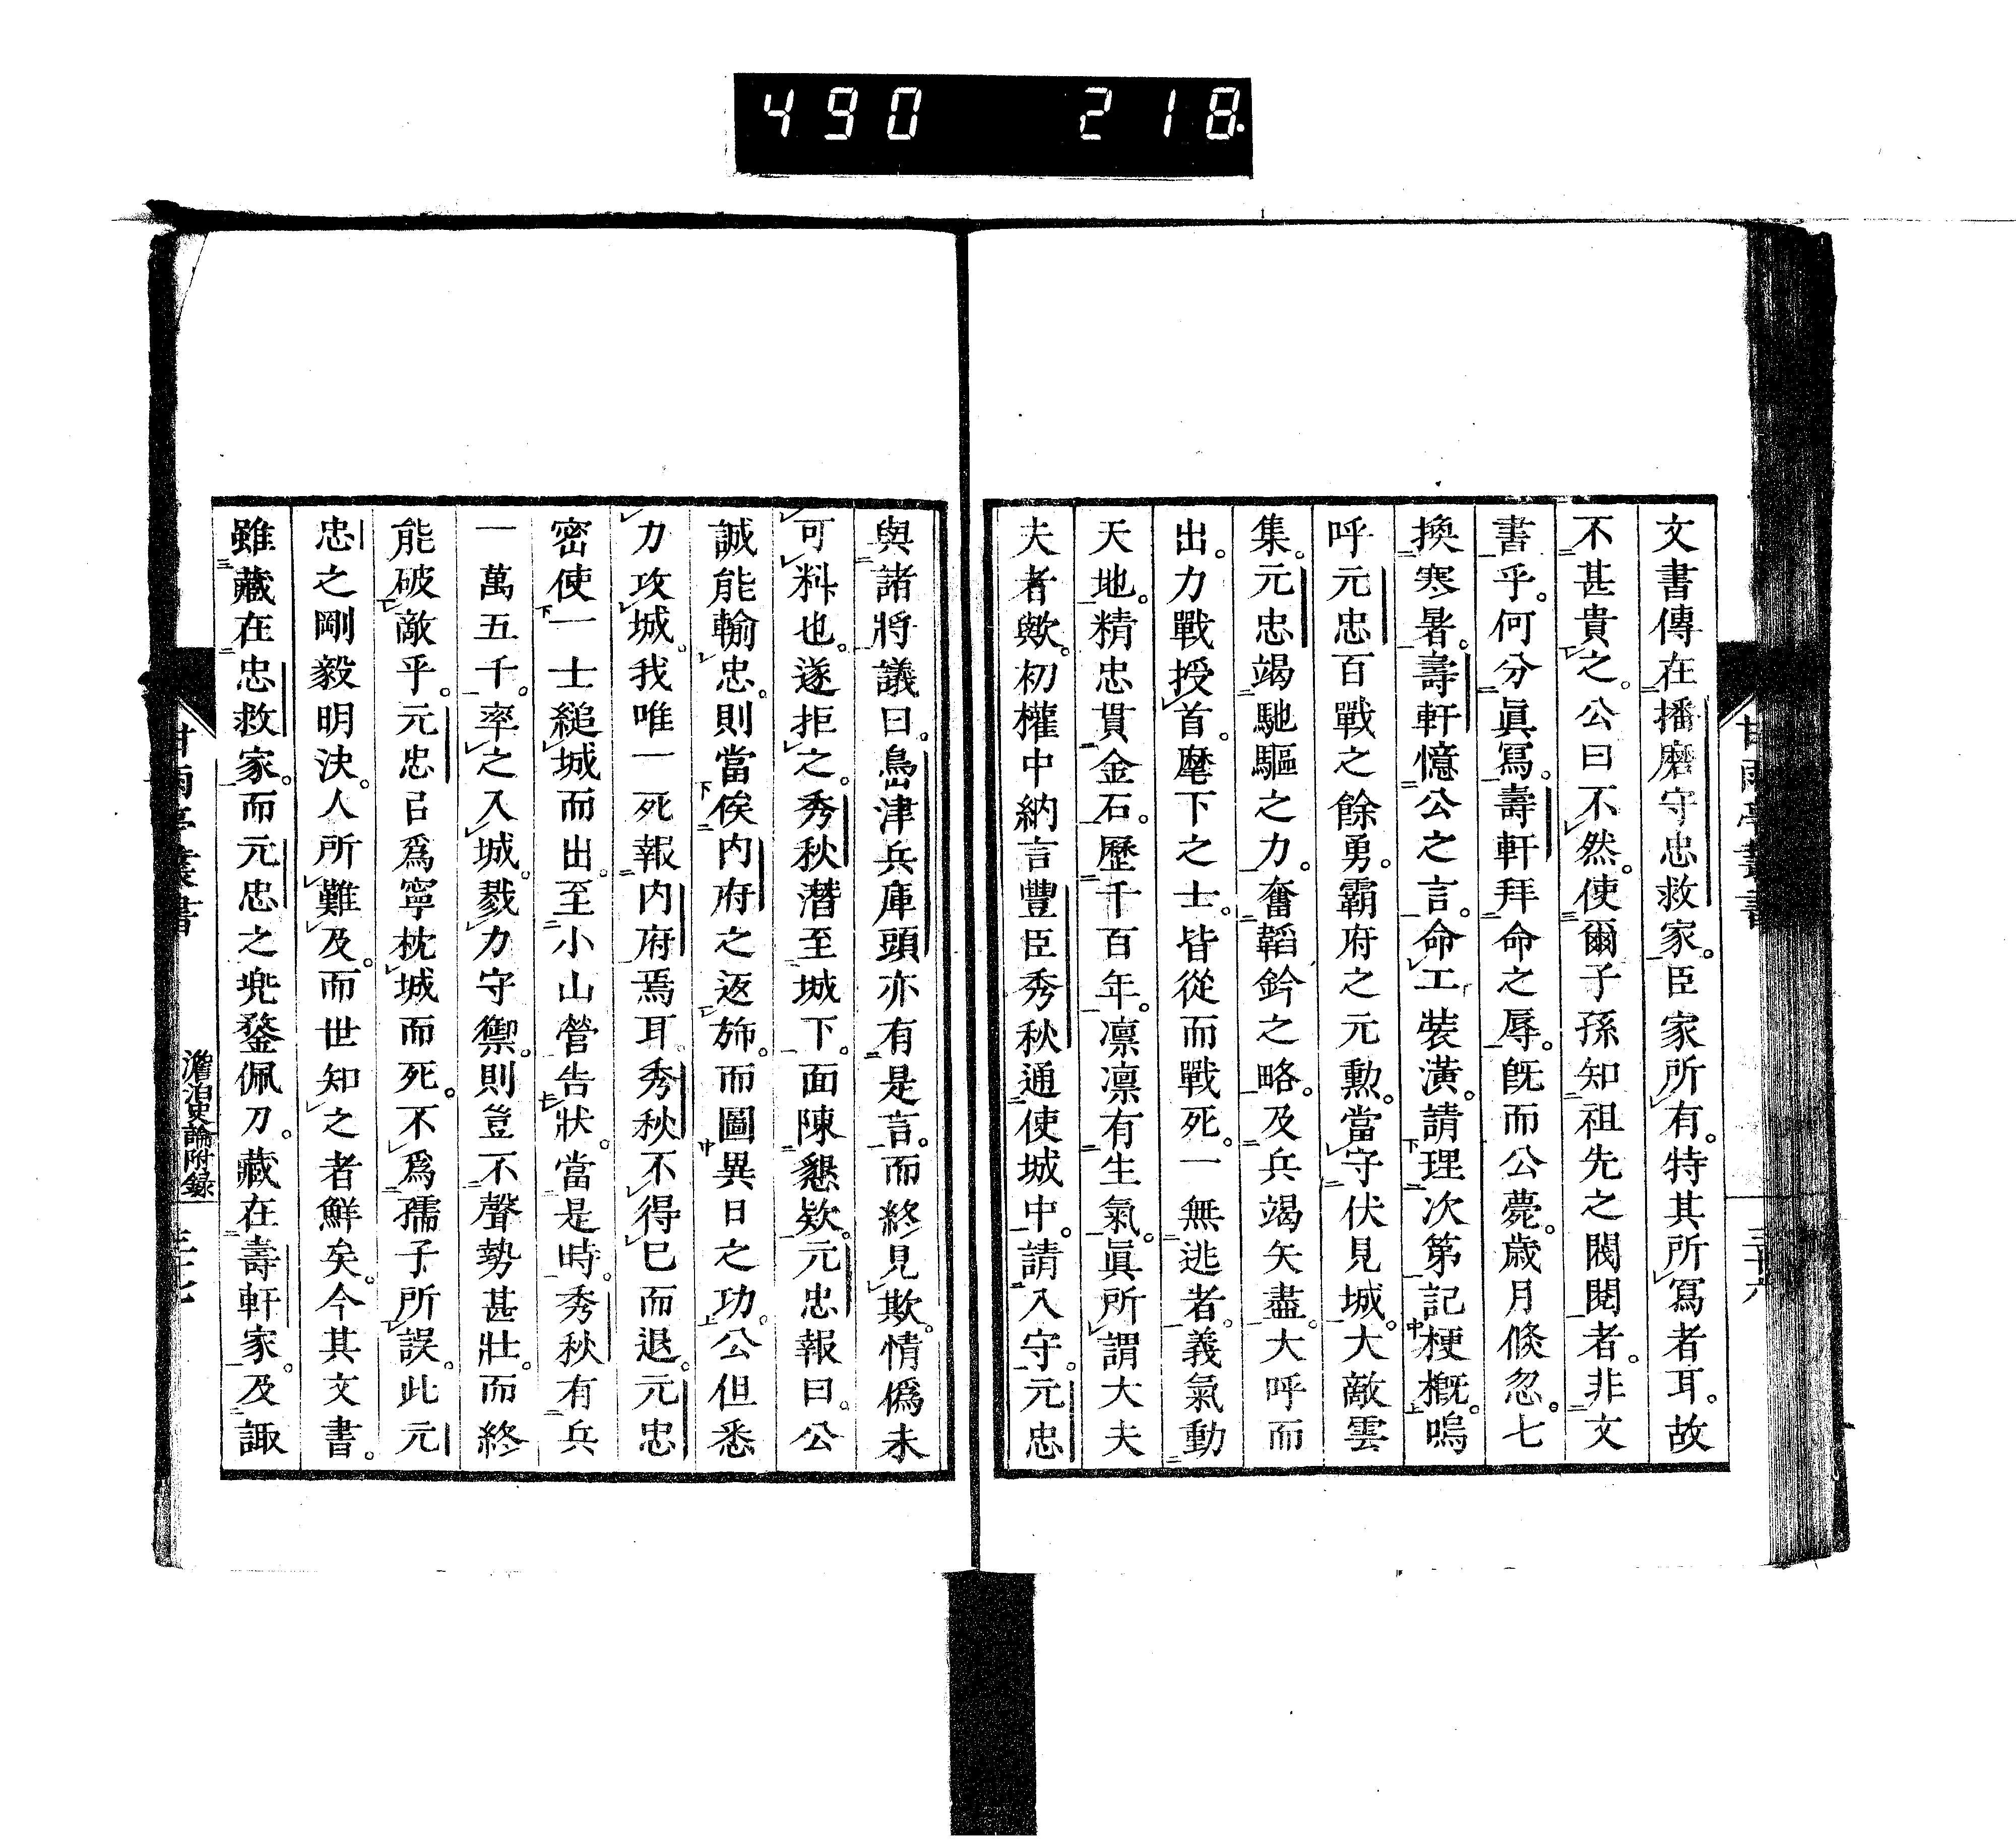 490 218
文書傳在播磨守忠救家。臣家所有。特其所寫者耳。故
不甚貴之。公曰不然。使爾子孫知祖先之閥閲者。非文
書乎。何分眞寫。壽軒拜命之辱。既而公薨。歳月倐忽。七
換寒暑。壽軒憶公之言。命工裝潢。請理次第記梗概。嗚
呼元忠百戰之餘勇。霸府之元勲。當守伏見城。大敵雲
集。元忠竭馳驅之力。奮韜鈐之略。及兵竭矢盡。大呼而
出。力戰授首。麾下之士。皆從而戰死。一無逃者。義氣動
天地。精忠貫金石。歷千百年。凛凛有生氣。眞所謂大夫
夫者歟。初權中納言豐臣秀秋通使城中。請入守。元忠
與諸將議曰。島津兵庫頭亦有是言。而終見欺。情僞未
可料也。遂拒之。秀秋潛至城下。面陳懇欵。元忠報曰。公
誠能輸忠。則當俟内府之返斾。而圖異日之功。公但悉
力攻城。我唯一死報内府焉耳。秀秋不得已而退。元忠
密使一士縋城而出。至小山營告狀。當是時。秀秋有兵
一萬五千。率之入城。戮力守禦。則豈不聲勢甚壯。而終
能破敵乎。元忠已爲寧枕城而死。不爲孺子所誤。此元
忠之剛毅明決。人所難及。而世知之者鮮矣。今其文書。
雖藏在忠救家。而元忠之兠鍪佩刀。藏在壽軒家。及諏
甘雨亭叢書 澹泊史論附録